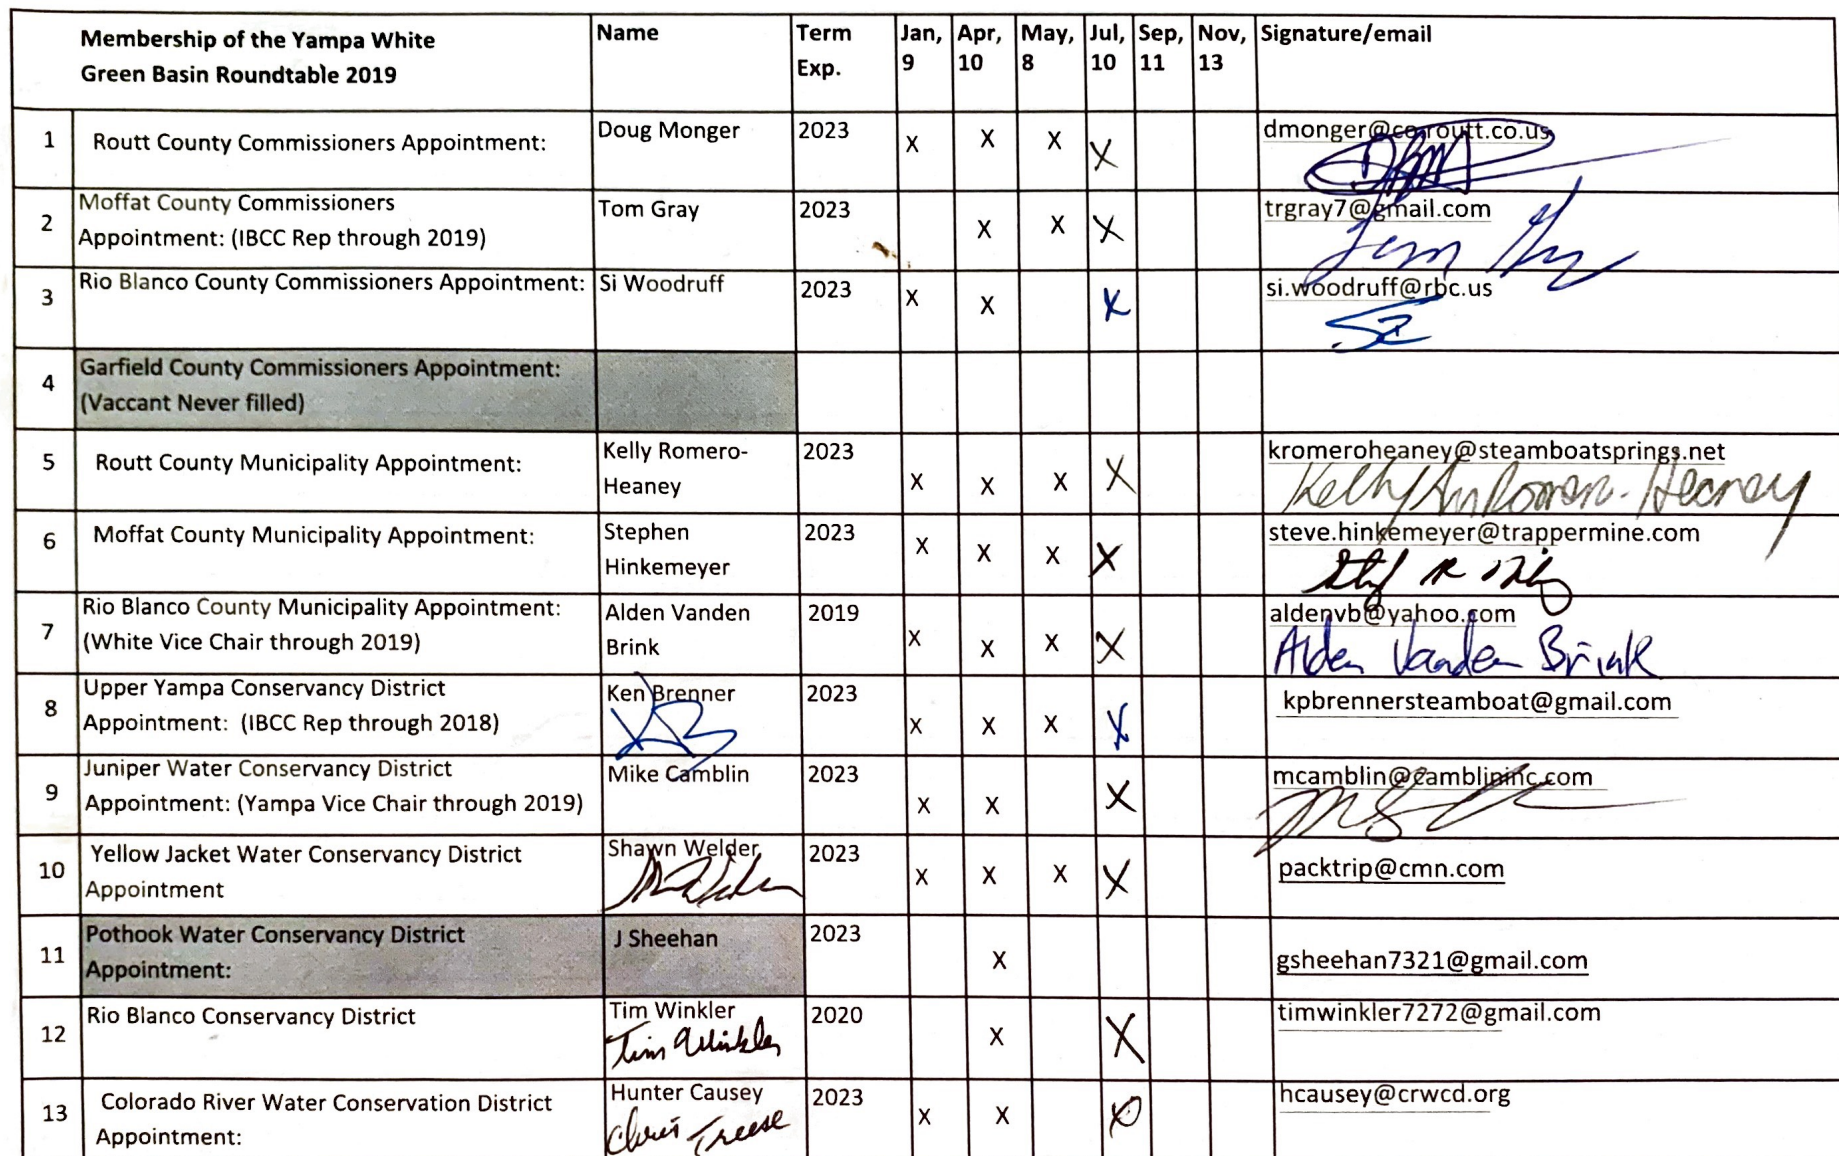 Membership of the Yampa White
Green Basin Roundtable 2019
Name
Term
Exp.
Jan,
9
Apr,
10
May,
8
Jul,
10
Sep,
11
Nov,
13
Signature/email
1
Routt County Commissioners Appointment:
Doug Monger
2023
X
X
X
X
dmonger@co.routt.co.us
2
Moffat County Commissioners
Appointment: (IBCC Rep through 2019)
Tom Gray
2023
X
X
X
trgray7@gmail.com
Tom Gray
3
Rio Blanco County Commissioners Appointment:
Si Woodruff
2023
X
X
X
si.woodruff@rbc.us
4
Garfield County Commissioners Appointment:
(Vaccant Never filled)
5
Routt County Municipality Appointment:
Kelly Romero-
Heaney
2023
X
X
X
X
kromeroheaney@steamboatsprings.net
Kelly Romero-Heaney
6
Moffat County Municipality Appointment:
Stephen
Hinkemeyer
2023
X
X
X
X
steve.hinkemeyer@trappermine.com
7
Rio Blanco County Municipality Appointment:
(White Vice Chair through 2019)
Alden Vanden
Brink
2019
X
X
X
X
aldenvb@yahoo.com
Alden Vanden Brink
8
Upper Yampa Conservancy District
Appointment: (IBCC Rep through 2018)
Ken Brenner
KB
2023
X
X
X
X
kpbrennersteamboat@gmail.com
9
Juniper Water Conservancy District
Appointment: (Yampa Vice Chair through 2019)
Mike Camblin
2023
X
X
X
mcamblin@camblininc.com
10
Yellow Jacket Water Conservancy District
Appointment
Shawn Welder
2023
X
X
X
X
packtrip@cmn.com
11
Pothook Water Conservancy District
Appointment:
J Sheehan
2023
X
gsheehan7321@gmail.com
12
Rio Blanco Conservancy District
Tim Winkler
Tim Winkler
2020
X
X
timwinkler7272@gmail.com
13
Colorado River Water Conservation District
Appointment:
Hunter Causey
Chris Treese
2023
X
X
X
hcausey@crwcd.org